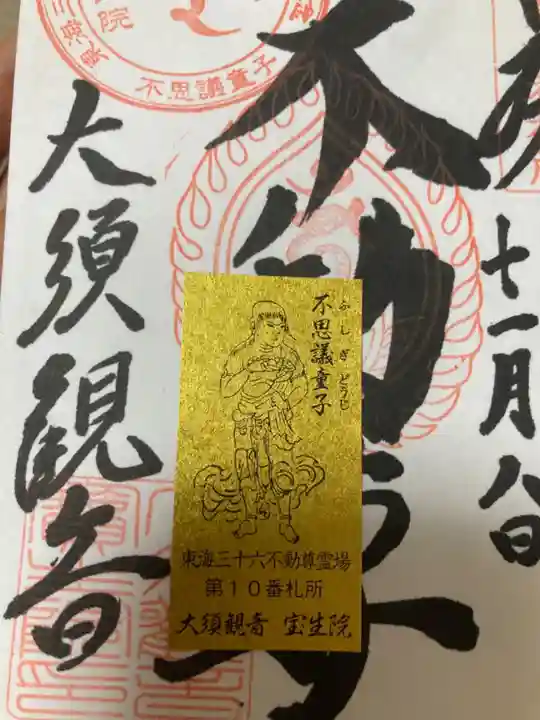 十一月八日
不動尊
大須観音
不思議童子
不思議童子
ふしぎどうじ
東海三十六不動尊霊場
第10番札所
大須観音 宝生院